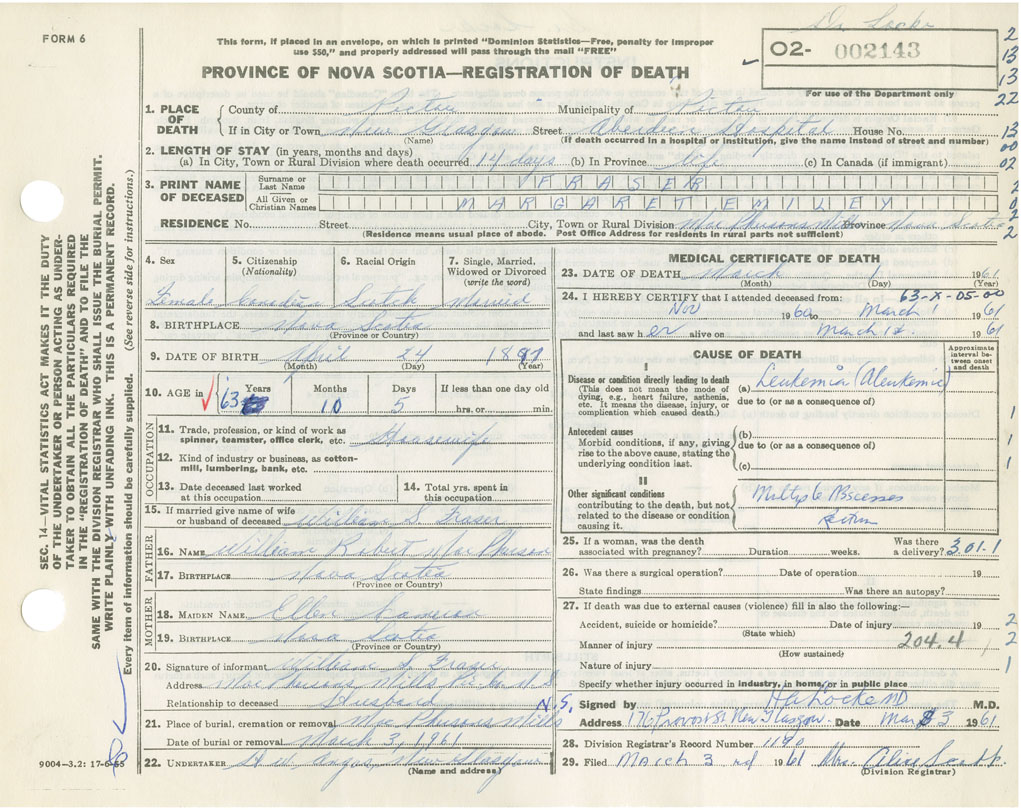 FORM 6
Dr. Locke
This form, if placed in an envelope, on which is printed "Dominion Statistics—Free, penalty for improper
use $50," and properly addressed will pass through the mail "FREE"
O2- 002143
For use of the Department only
PROVINCE OF NOVA SCOTIA—REGISTRATION OF DEATH
1. PLACE OF DEATH County of Pictou Municipality of Pictou
If in City or Town New Glasgow Street Aberdeen Hospital House No.
(Name) (If death occurred in a hospital or institution, give the name instead of street and number)
2. LENGTH OF STAY (in years, months and days)
(a) In City, Town or Rural Division where death occurred 14 days (b) In Province life (c) In Canada (if immigrant)
3. PRINT NAME OF DECEASED
Surname or Last Name FRASER
All Given or Christian Names MARGARET EMILEY
RESIDENCE No. Street City, Town or Rural Division MacPhersons Mills Province Nova Scotia
(Residence means usual place of abode. Post Office Address for residents in rural parts not sufficient)
4. Sex Female
5. Citizenship (Nationality) Canadian
6. Racial Origin Scotch
7. Single, Married, Widowed or Divorced (write the word) Married
8. BIRTHPLACE Nova Scotia
(Province or Country)
9. DATE OF BIRTH April 24 1897
(Month) (Day) (Year)
10. AGE in Years 63 Months 10 Days 5 If less than one day old
hrs. or min.
OCCUPATION
11. Trade, profession, or kind of work as spinner, teamster, office clerk, etc. Housewife
12. Kind of industry or business, as cotton-mill, lumbering, bank, etc.
13. Date deceased last worked at this occupation
14. Total yrs. spent in this occupation
15. If married give name of wife or husband of deceased William S. Fraser
FATHER
16. NAME William Robert MacPherson
17. BIRTHPLACE Nova Scotia
(Province or Country)
MOTHER
18. MAIDEN NAME Ellen Cameron
19. BIRTHPLACE Nova Scotia
(Province or Country)
20. Signature of informant William S. Fraser
Address MacPhersons Mills Pic. Co. N.S.
Relationship to deceased Husband
21. Place of burial, cremation or removal MacPhersons Mills N.S.
Date of burial or removal March 3, 1961
22. UNDERTAKER H. W. Angus, New Glasgow
(Name and address)
MEDICAL CERTIFICATE OF DEATH
23. DATE OF DEATH March 1 1961
(Month) (Day) (Year)
24. I HEREBY CERTIFY that I attended deceased from: 63-X-05-00
Nov 1960 to March 1 1961
and last saw her alive on March 1st. 1961
CAUSE OF DEATH
Approximate interval between onset and death
I
Disease or condition directly leading to death
(This does not mean the mode of dying, e.g., heart failure, asthenia, etc. It means the disease, injury, or complication which caused death.)
(a) Leukemia (Aleukemic)
due to (or as a consequence of)
Antecedent causes
Morbid conditions, if any, giving rise to the above cause, stating the underlying condition last.
(b)
due to (or as a consequence of)
(c)
II
Other significant conditions
contributing to the death, but not related to the disease or condition causing it.
Multiple Abscesses
Rectum
25. If a woman, was the death associated with pregnancy? Duration weeks. Was there a delivery? 301.1
26. Was there a surgical operation? Date of operation 19
State findings Was there an autopsy?
27. If death was due to external causes (violence) fill in also the following:—
Accident, suicide or homicide? Date of injury 19
(State which)
Manner of injury 204.4
(How sustained)
Nature of injury
Specify whether injury occurred in industry, in home, or in public place
Signed by HA Locke MD M.D.
Address 176 Provost St New Glasgow Date Mar 3 1961
28. Division Registrar's Record Number 1190
29. Filed March 3rd 1961 Mrs.
(Division Registrar)
SEC. 14—VITAL STATISTICS ACT MAKES IT THE DUTY
OF THE UNDERTAKER OR PERSON ACTING AS UNDER-
TAKER TO OBTAIN ALL THE PARTICULARS REQUIRED
IN THE "REGISTRATION OF DEATH" AND TO FILE THE
SAME WITH THE DIVISION REGISTRAR WHO SHALL ISSUE THE BURIAL PERMIT.
WRITE PLAINLY WITH UNFADING INK. THIS IS A PERMANENT RECORD.
Every item of information should be carefully supplied. (See reverse side for instructions.)
2
13
13
22
13
00
02
2
0
2
2
1
1
1
2
2
1